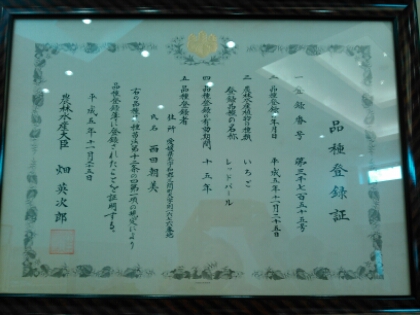 品種登録証
一 登録番号 第三千七百三十五号
二 品種登録の年月日 平成五年十一月二十五日
三 農林水産植物の種類 いちご
登録品種の名称 レッドパール
四 品種登録の有効期間 十五年
五 品種登録者
住所 愛媛県
氏名 西田朝美
右の品種は種苗法第十二条の四第一項の規定により
品種登録簿に登録されたことを証明する。
平成五年十一月二十五日
農林水産大臣 畑英次郎